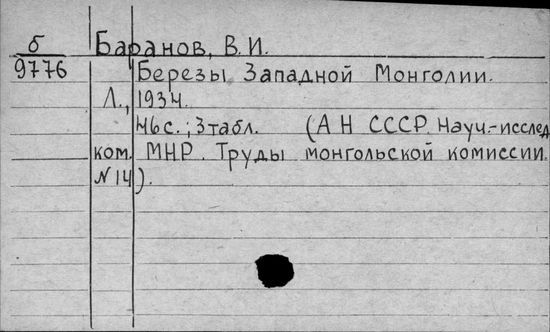 б Баранов, В.И.
9776 Березы Западной Монголии.
Л., 1934.
46с.; 3табл. (АН СССР. Науч.-исслед
ком. МНР. Труды монгольской комиссии.
№14).